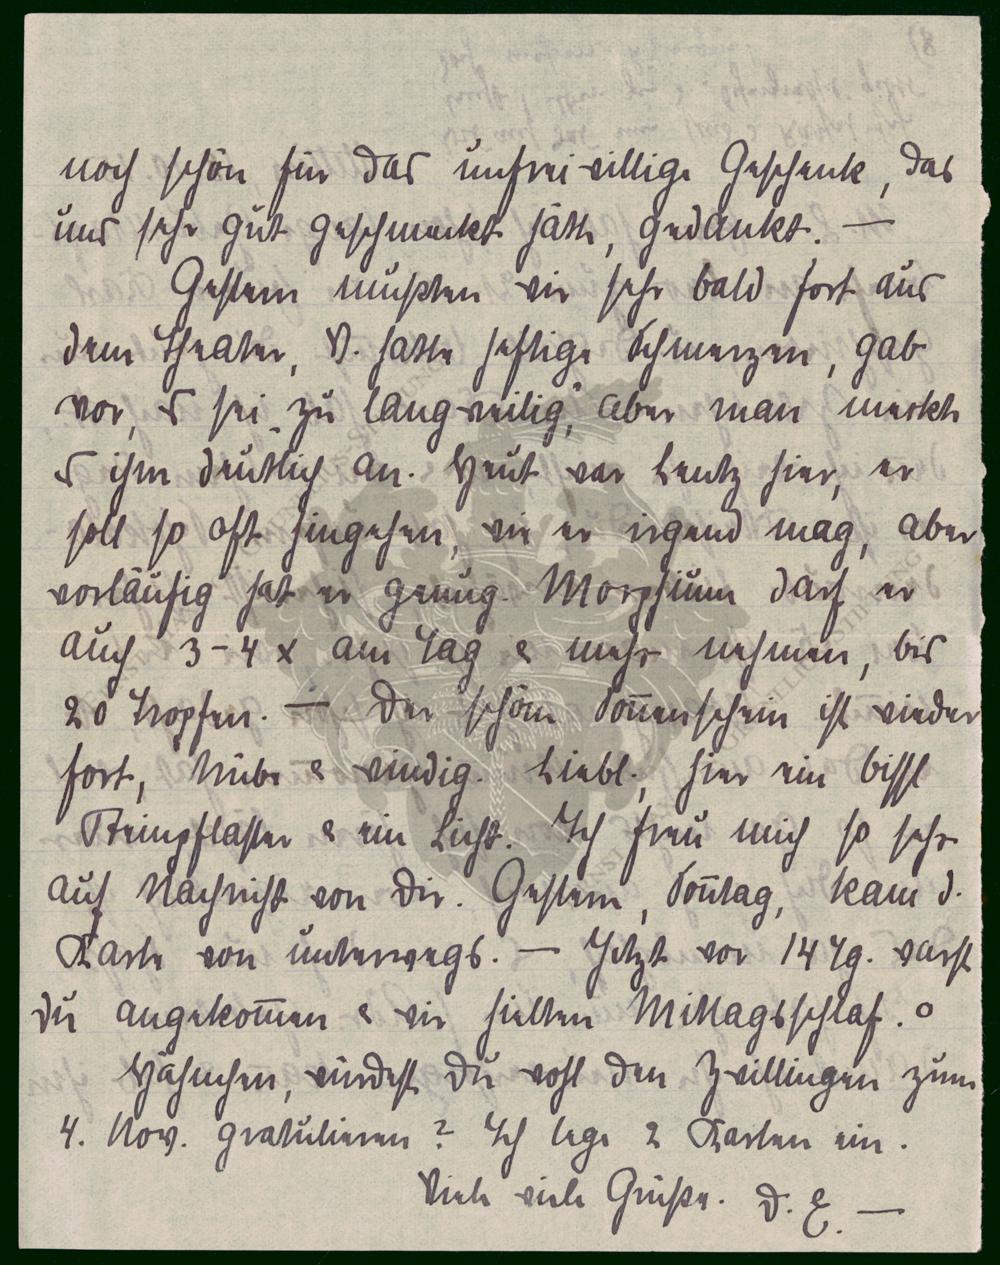 noch schön für das unfreiwillige Geschenk, das
uns sehr gut geschmeckt hätte, gedankt. —
Gestern mußten wir sehr bald fort aus
dem Theater, V. hatte heftige Schmerzen, gab
vor, es sei „zu langweilig", aber man merkte
es ihm deutlich an. Heut war Lentz hier, er
soll so oft hingehen, wie er irgend mag, aber
vorläufig hat er genug. Morphium darf er
auch 3-4 x am Tag & mehr nehmen, bis
20 Tropfen. — Der schöne Son̄enschein ist wieder
fort, trübe & windig. Liebl., hier ein bissl
Heftpflaster & ein Licht. Ich freu mich so sehr
auf Nachricht von Dir. Gestern, Son̄tag, kam d.
Karte von unterwegs. — Jetzt vor 14 Tg. warst
Du angekom̄en & wir hielten Mittagsschlaf. o
Hähnchen, würdest Du wohl den Zwillingen zum
4. Nov. gratulieren? Ich lege 2 Karten ein.
Viele viele Grüße. D. E. —